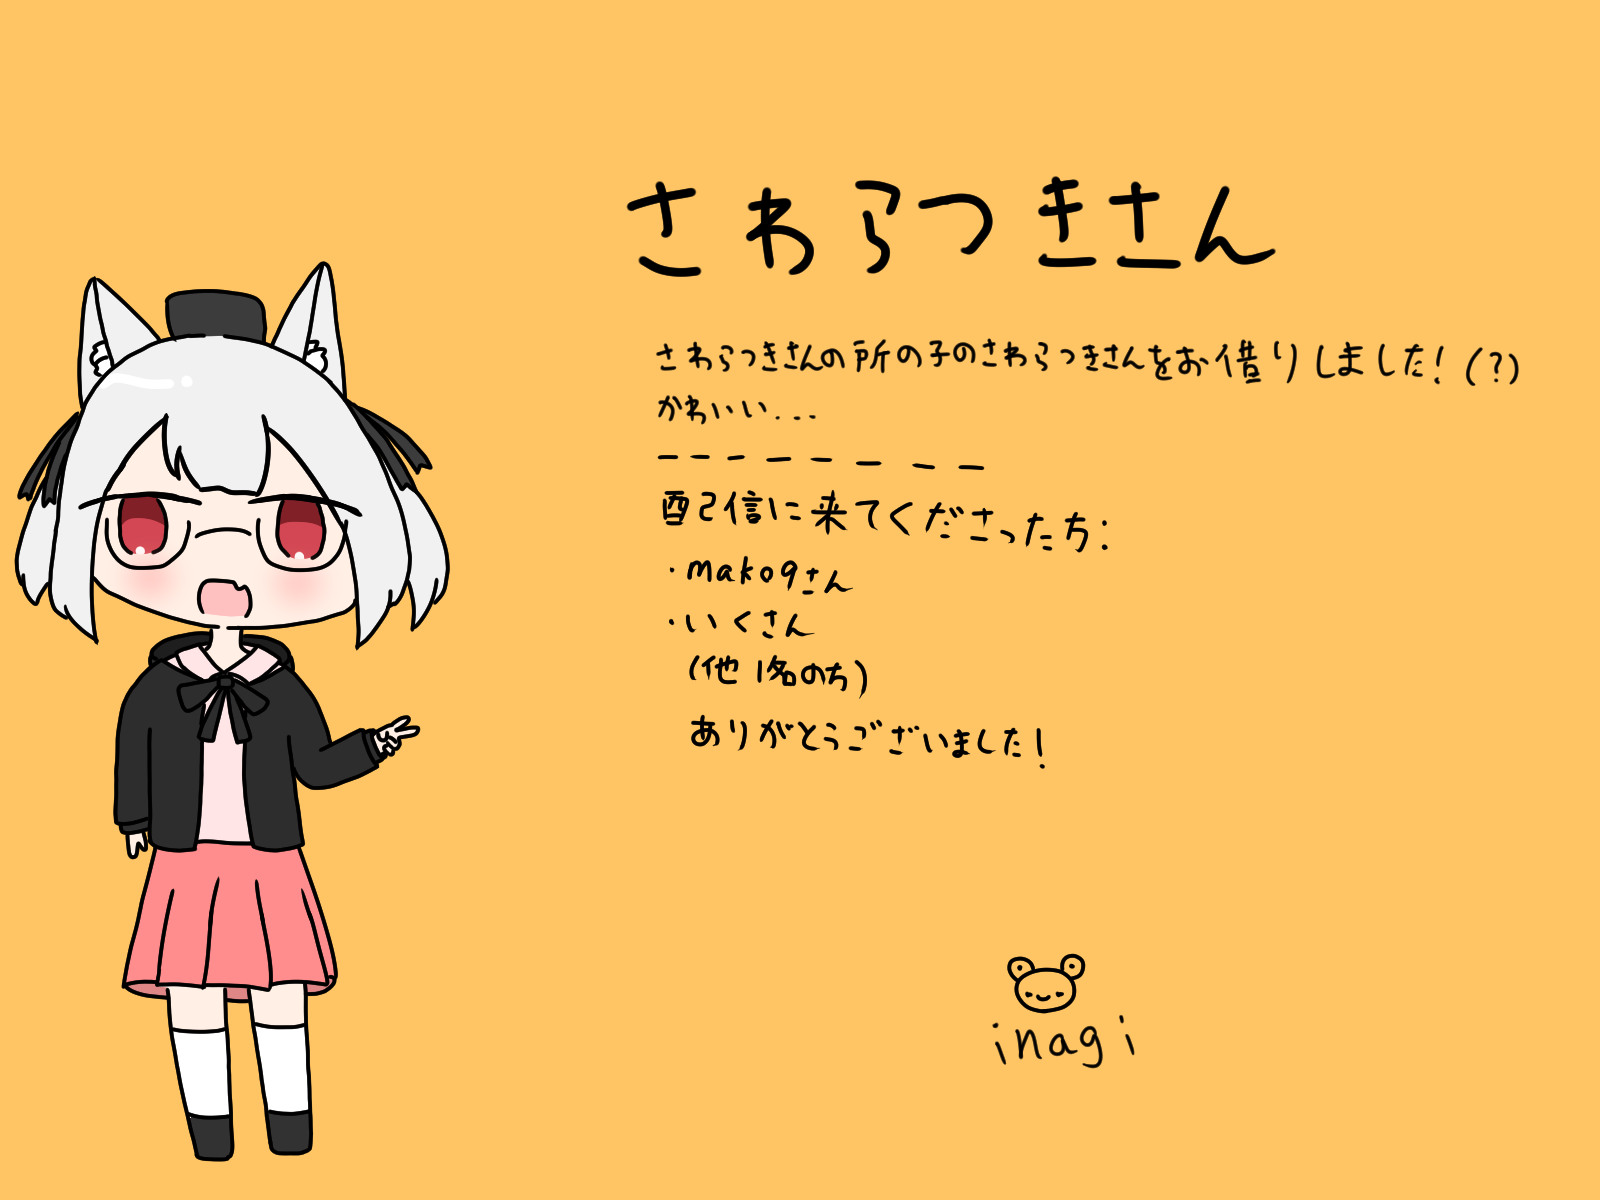 さわらつきさん
さわらつきさんの所の子のさわらつきさんをお借りしました!(?)
かわいい...
ーーーーーーーー
配信に来てくださった方:
・mako9さん
・いくさん
(他1名の方)
ありがとうございました!
inagi